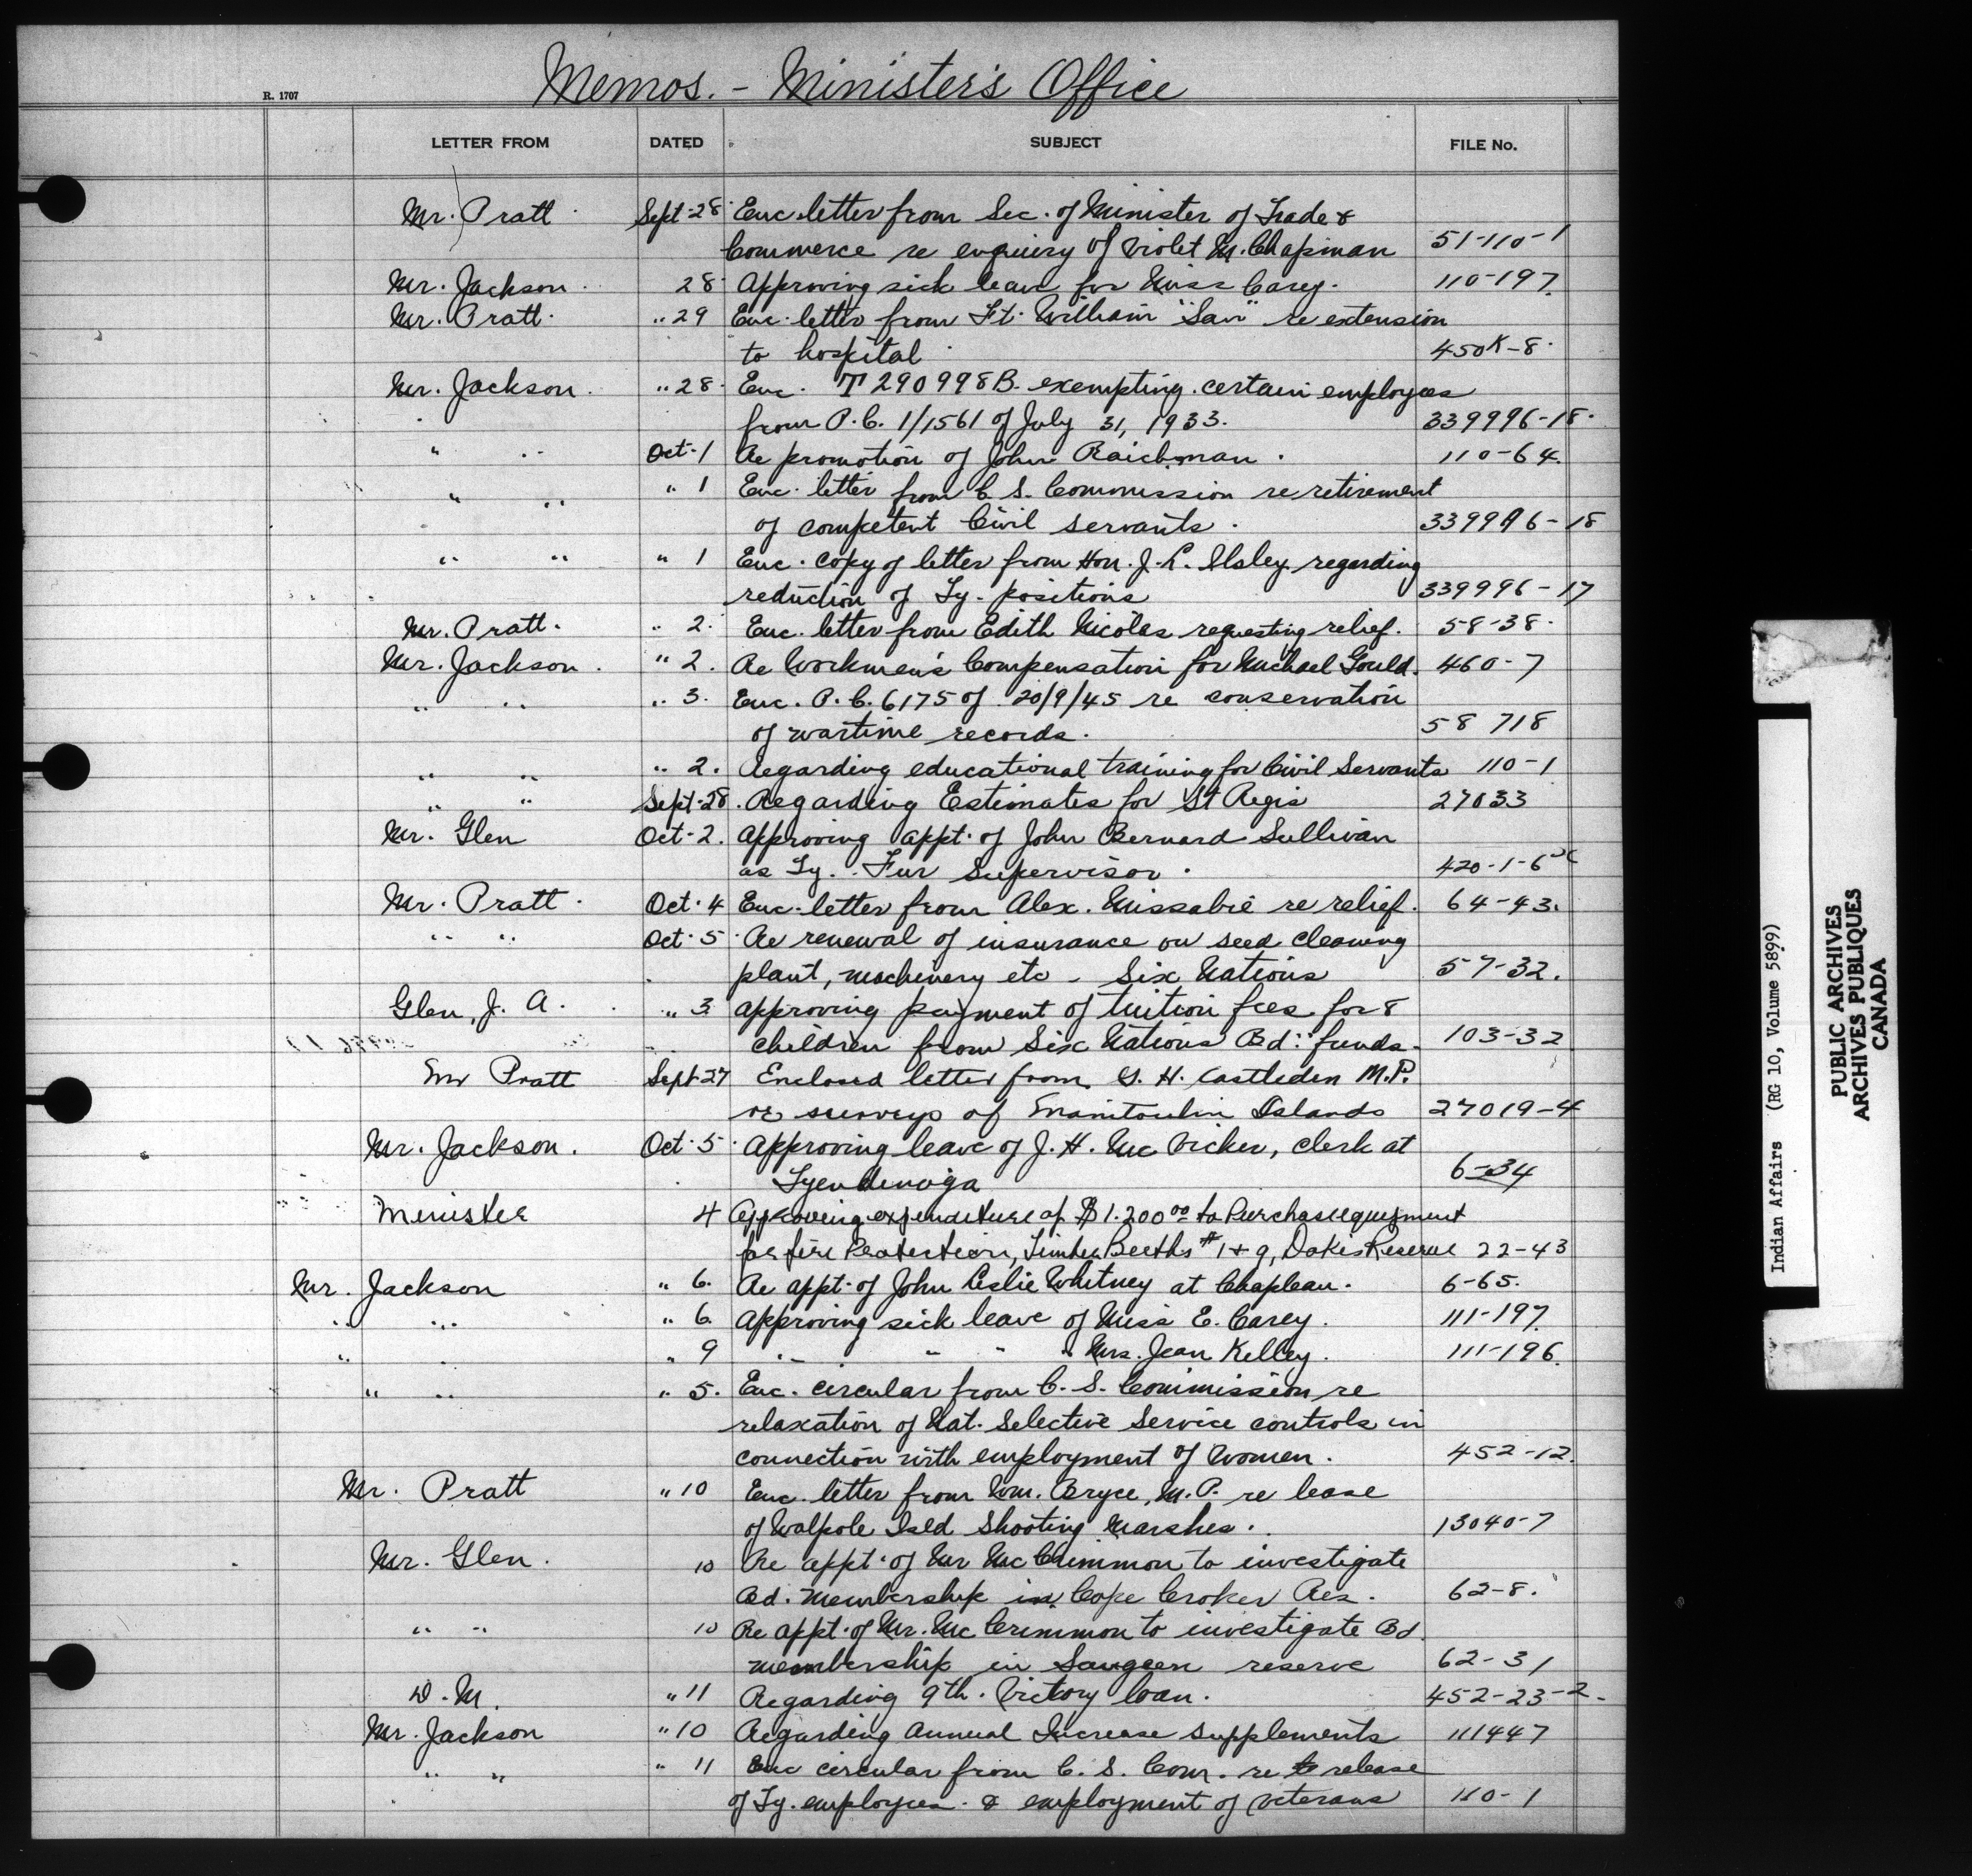 Memos. - Minister's Office
R. 1707
LETTER FROM DATED SUBJECT FILE No.
Mr. Pratt Sept-28 Enc. letter from Sec. of Minister of Trade &
Commerce re enquiry of Violet M. Chapman 51-110-1
Mr. Jackson 28 Approving sick leave for Miss Carey. 110-197
Mr. Pratt " 29 Enc. letter from Ft. William "San" re extension
to hospital 450K-8
Mr. Jackson " 28 Enc. T290998B. exempting certain employees
from P.C. 1/1561 of July 31, 1933. 339996-18
" " Oct-1 Re promotion of John Raichman. 110-64
" " " 1 Enc. letter from C. S. Commission re retirement
of competent Civil servants. 339996-18
" " " 1 Enc. copy of letter from Hon. J. L. Ilsley regarding
reduction of Ty. positions 339996-17
Mr. Pratt. " 2. Enc. letter from Edith Nicolas requesting relief. 58-38
Mr. Jackson. " 2. Re Workmen's Compensation for Michael Gould. 460-7
" " " 3. Enc. P.C. 6175 of 20/9/45 re conservation
of wartime records. 58 718
" " " 2. Regarding educational training for Civil Servants 110-1
" " Sept-28. Regarding Estimates for St Regis 27033
Mr. Glen Oct-2. Approving appt. of John Bernard Sullivan
as Ty. Fur Supervisor. 420-1-6
Mr. Pratt. Oct. 4 Enc. letter from Alex. Missabie re relief. 64-43.
" " Oct. 5 Re renewal of insurance on seed cleaning
plant, machinery etc - Six Nations 57-32.
Glen, J. A. " 3 approving payment of tuition fees for 8
children from Six Nations Bd. funds. 103-32
Mr Pratt Sept-27 Enclosed letter from G. H. Castleden M.P.
re surveys of Manitoulin Islands 27019-4
Mr. Jackson. Oct. 5 Approving leave of J. H. Mc Vicker, clerk at
Tyendinaga 6-34
Minister 4 Approving expenditure of $1.200 00 to Purchase equipment
for fire Protection, Timber Berths #1 + 9, Dokis Reserve 22-43
Mr. Jackson " 6. Re appt. of John Leslie Whitney at Chapleau. 6-65.
" " " 6. Approving sick leave of Miss E. Carey. 111-197
" " " 9 " " " " Mrs. Jean Kelley. 111-196
" " " 5. Enc. circular from C. S. Commission re
relaxation of Nat. Selective Service controls in
connection with employment of Women. 452-12.
Mr. Pratt " 10 Enc. letter from Wm. Bryce, M.P. re lease
of Walpole Isld Shooting Marshes. 13040-7
Mr. Glen. 10 Re appt. of Mr McCrimmon to investigate
Bd. membership in Cape Croker Res. 62-8.
" " 10 Re appt. of Mr. Mc Crimmon to investigate Bd.
membership in Saugeen reserve 62-31
D. M. " 11 Regarding 9th. Victory loan. 452-23-2
Mr. Jackson " 10 Regarding Annual Increase Supplements 111447
" " " 11 Enc circular from C. S. Com. re release
of Ty. employees & employment of veterans 110-1
Indian Affairs (RG 10, Volume 5899)
PUBLIC ARCHIVES
ARCHIVES PUBLIQUES
CANADA